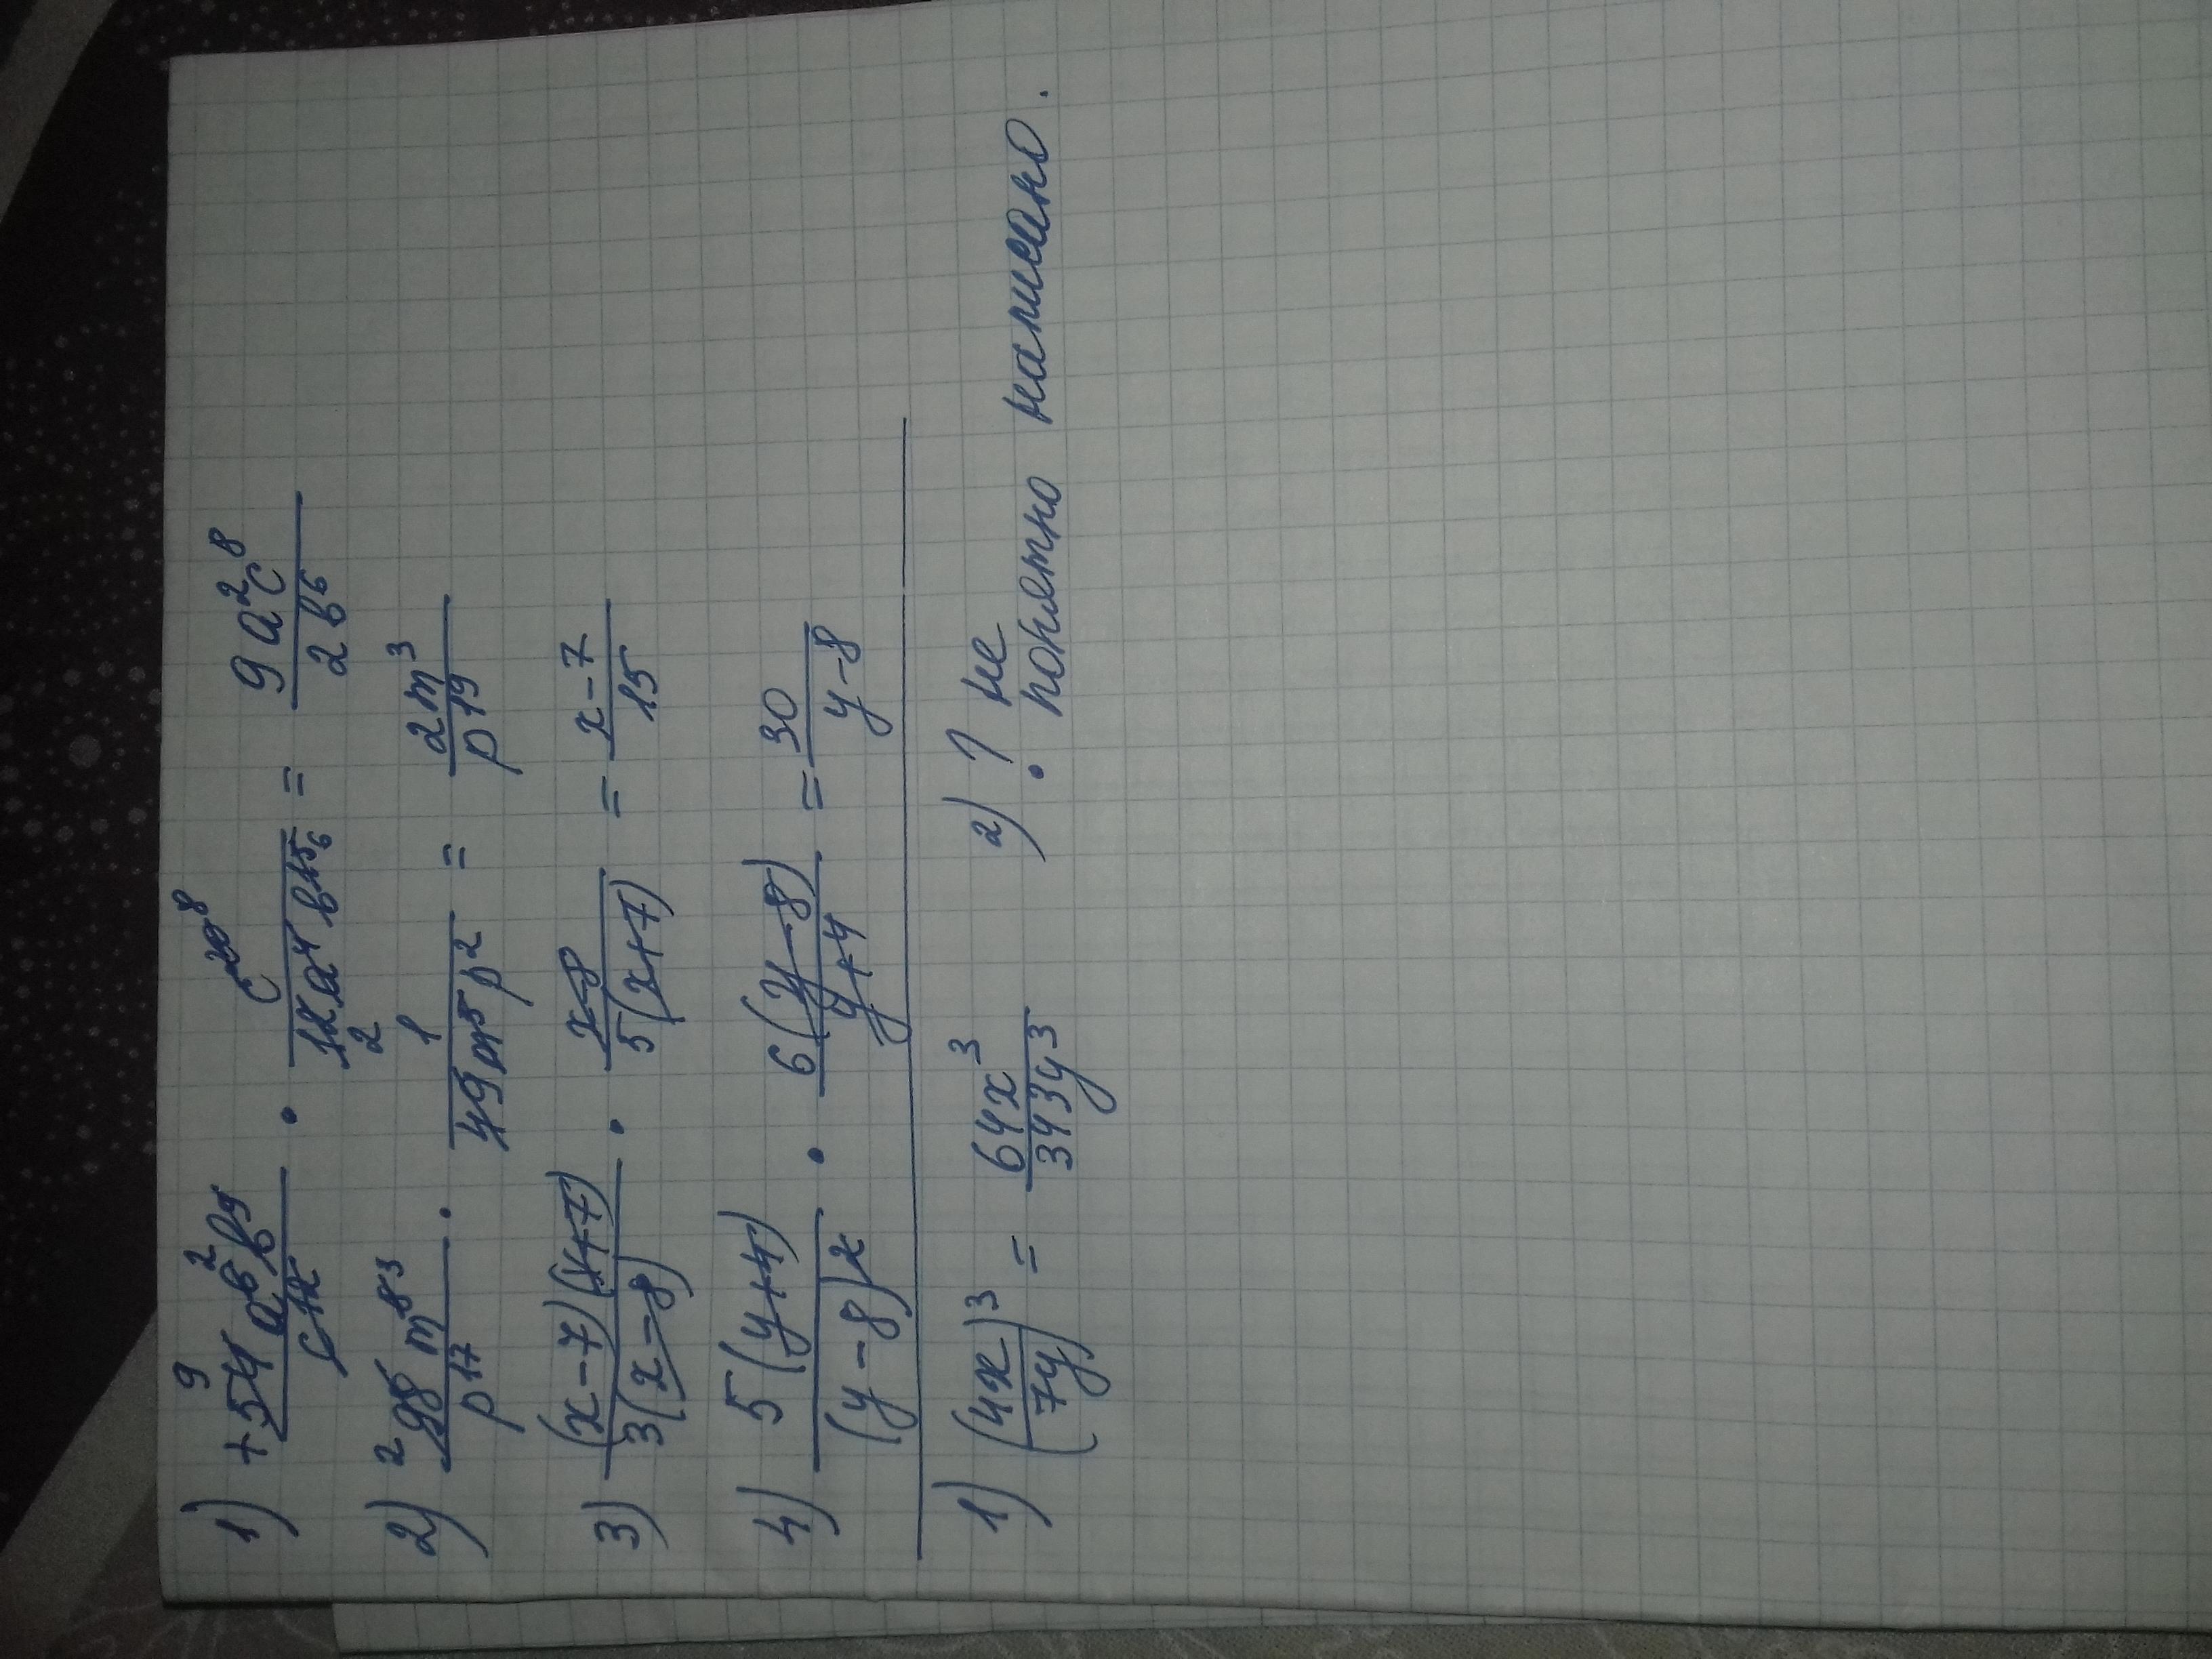 1) + 54a⁶b⁹ / c¹² · c²⁰ / 12a⁴b¹⁵ = 9a²c⁸ / 2b⁶
2) 98m⁸ / p¹⁷ · 1 / 49m⁵p² = 2m³ / p¹⁹
3) (x-7)(x+7) / 3(x-8) · x-8 / 5(x+7) = x-7 / 15
4) 5(y+4) / (y-8)² · 6(y-8) / y+4 = 30 / y-8
1) (4x / 7y)³ = 64x³ / 343y³ 2) ? не понятно написано.